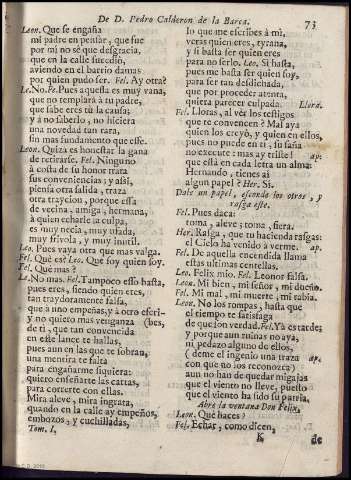 De D. Pedro Calderon de la Barca. 73
Leon. Que se engaña
mi padre en pensar, que fue
por mi no sé que desgracia,
que en la calle sucedió,
aviendo en el barrio damas
por quien pudo ser. Fel. Ay otra?
Le. No. Fe. Pues aquesta es muy vana,
que no templará à tu padre,
que sabe eres tù la causa;
y à no saberlo, no hiciera
una novedad tan rara,
sin mas fundamento que este.
Leon. Quiza es honestar la gana
de retirarse. Fel. Ninguno
à costa de su honor trata
sus conveniencias; y assi,
piensa otra salida, traza
otra traycion, porque essa
de vecina, amiga, hermana,
à quien echarle la culpa,
es muy necia, muy usada,
muy frivola, y muy inutil.
Leo. Pues vaya otra que mas valga.
Fel. Què es? Leo. Que soy quien soy.
Fel. Què mas?
Le. No mas. Fel. Tampoco esso basta,
pues eres, siendo quien eres,
tan traydoramente falsa,
que à uno empeñas, y à otro escri-
y no quiero mas venganza (bes,
de ti, que tan convencida
en este lance te hallas,
pues aun en las que te sobran,
una mentira te falta
para engañarme siquiera:
quiero enseñarte las cartas,
para correrte con ellas.
Mira aleve, mira ingrata,
quando en la calle ay empeños,
embozos, y cuchilladas,
Tom. I.
lo que me escribes à mi,
veras quien eres, tyrana,
y si basta ser quien eres
para no serlo. Leo. Si basta,
pues me basta ser quien soy,
para ser tan desdichada,
que por proceder atenta,
quiera parecer culpada. Llora.
Fel. Lloras, al vèr los testigos
que te convencen? Mal aya
quien los creyò, y quien en ellos,
pues no puede en ti, su saña
no execute: mas ay triste! ap.
que está en cada letra un alma:
Hernando, tienes ai
algun papel? Her. Si.
Dale un papel, esconde los otros, y
rasga este.
Fel. Pues daca:
toma, aleve; toma, fiera.
Her. Rasga, que tu hacienda rasgas:
el Cielo ha venido à verme. ap.
Fel. De aquella encendida llama
estas ultimas centellas.
Leo. Felix mio. Fel. Leonor falsa.
Leon. Mi bien, mi señor, mi dueño.
Fel. Mi mal, mi muerte, mi rabia.
Leon. No los rompas, hasta que
el tiempo te satisfaga
de que son verdad. Fel. Ya es tarde;
y porque aun ruinas no aya,
ni pedazo alguno de ellos,
(deme el ingenio una traza ap.
con que no los reconozca)
aun no han de quedar migajas
que el viento no lleve, puesto
que el viento ha sido su patria.
Abre la ventana Don Felix.
Leon. Què haces?
Fel. Echar, como dicen,
K de